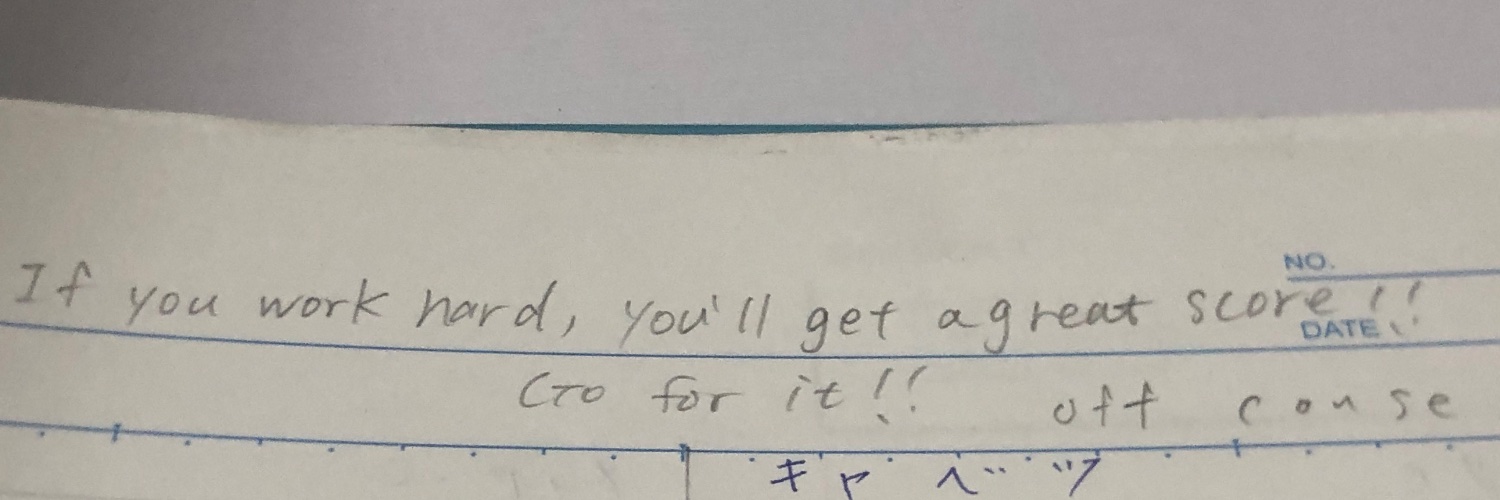 NO.
If you work hard, you'll get a great score!!
DATE
Go for it!! off couse
キャベツ